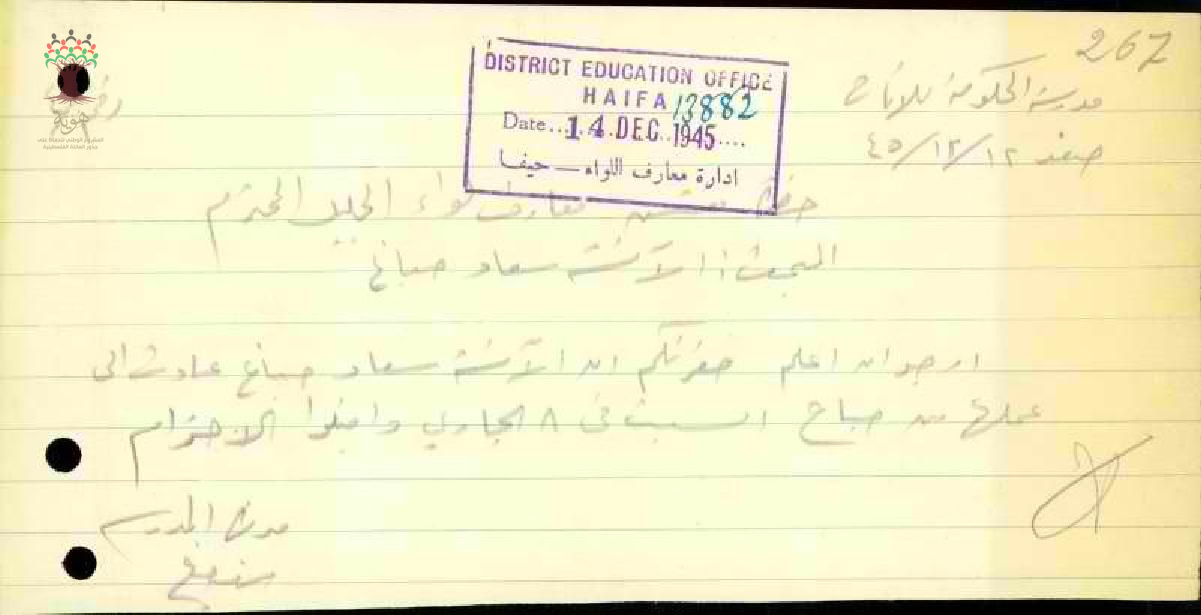 267
مدرسة الحكومة للاناث
صفد ١٢/١٢/٤٥
DISTRICT EDUCATION OFFICE
HAIFA 13882
Date..14.DEC.1945....
ادارة معارف اللواء — حيفا
حضرة مفتش معارف لواء الجليل المحترم
المبحث: الآنسة سعاد صباغ
ارجو ان اعلم حضرتكم ان الآنسة سعاد صباغ عادت الى
عملها من صباح السبت في ٨ الجاري واقبلوا الاحترام
مديرة المدرسة
هوية